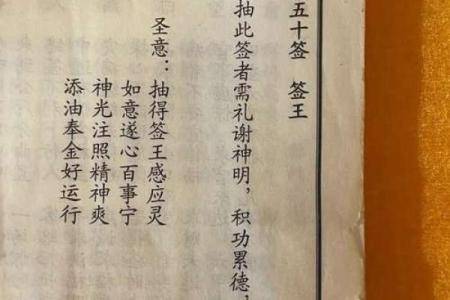 五十签 签王
抽此签者需礼谢神明，积功累德，
圣意：抽得签王感应灵
如意遂心百事宁
神光注照精神爽
添油奉金好运行